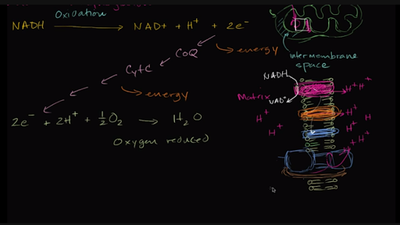 Oxidation
NADH → NAD+ + H⁺ + 2e⁻
CoQ → energy
Cyt C → energy
2e⁻ + 2H⁺ + ½O₂ → H₂O
Oxygen reduced
intermembrane
space
NADH
NAD⁺
Matrix
H⁺ H⁺
H⁺ H⁺ H
H⁺ H⁺
H⁺